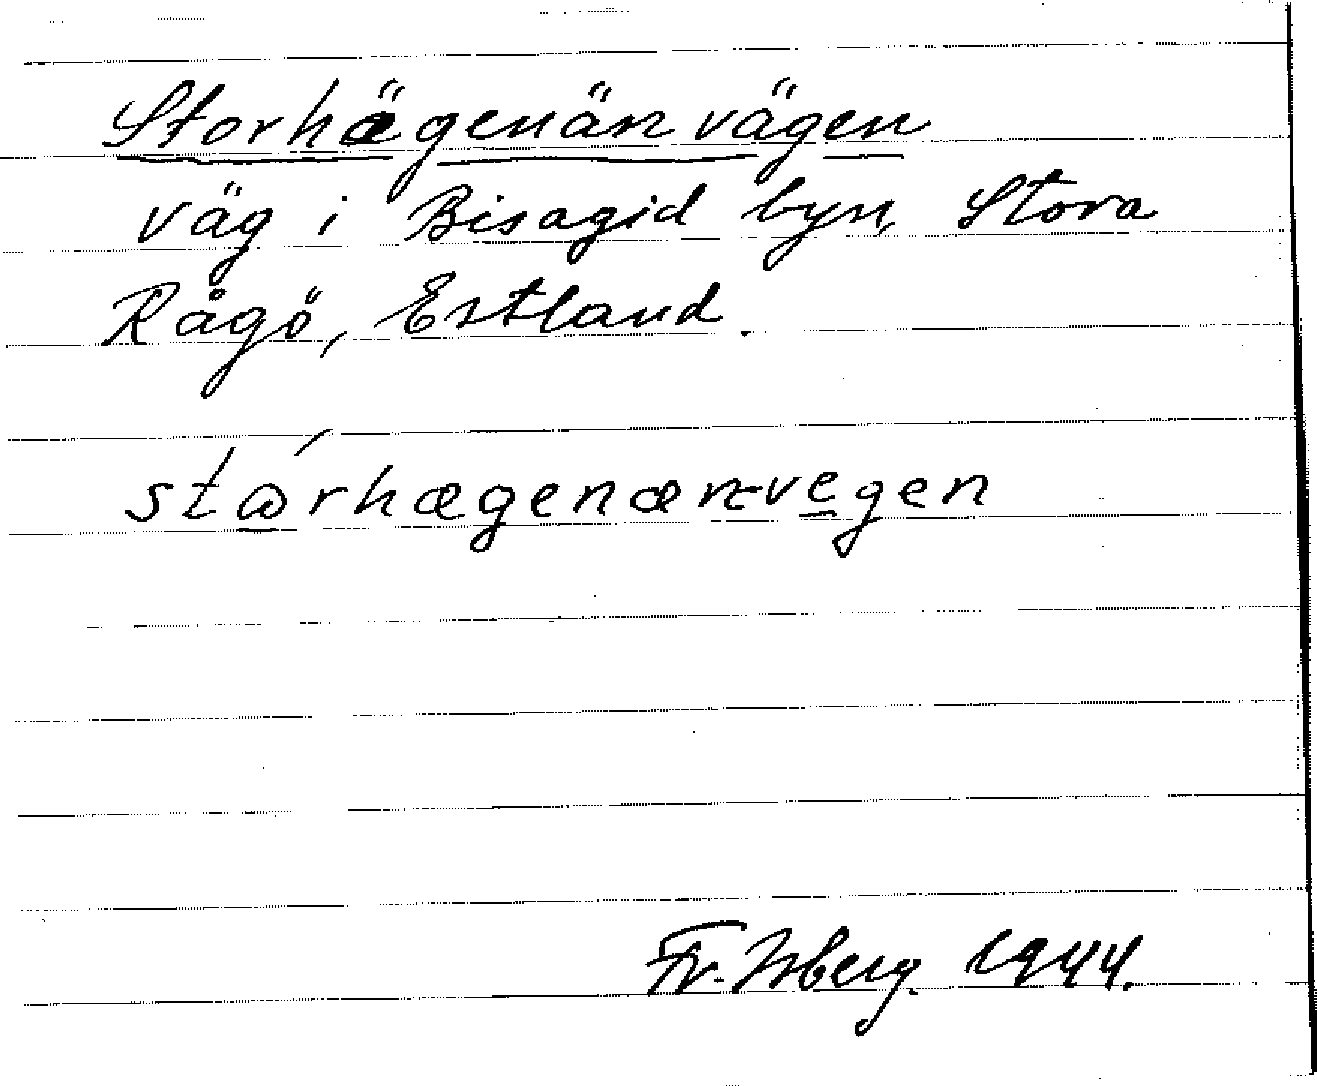 Storhägenän vägen
väg i Bisagid byn, Stora
Rågö, Estland.
stɷ́rhægenæn-vegen
Fr. Isberg. 1944.